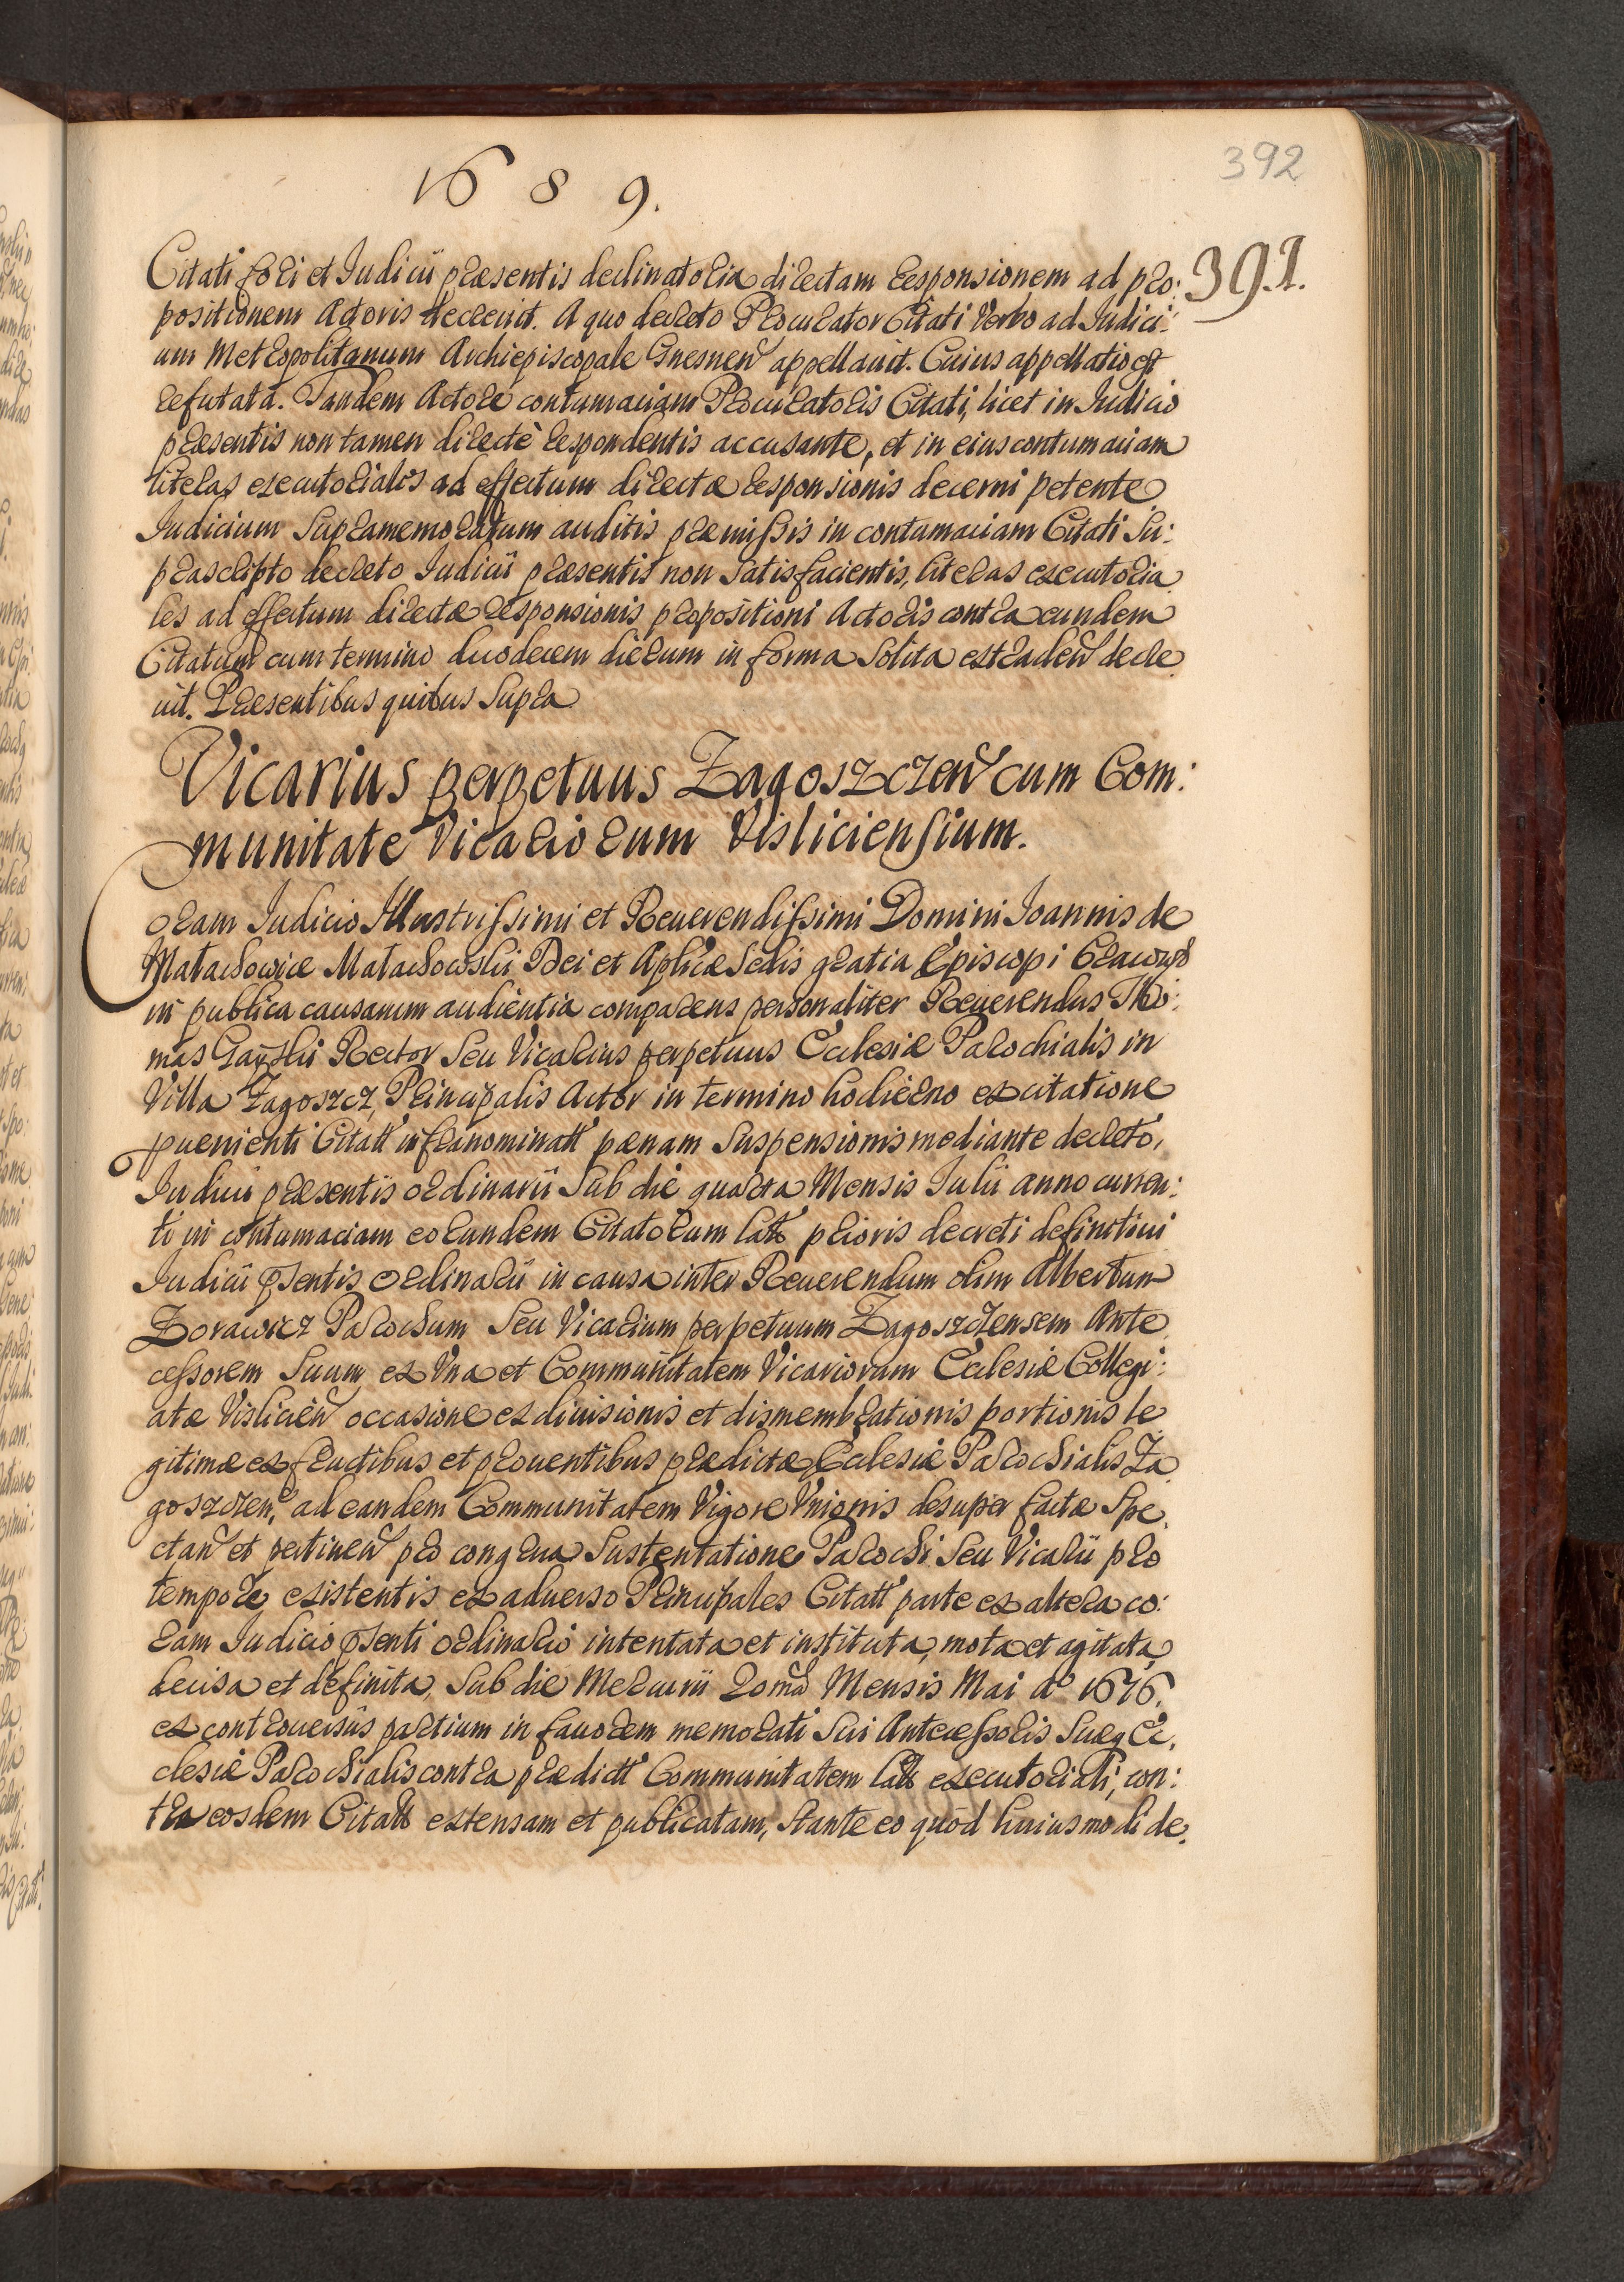 392
1689.
391.
Citati fori et Iudicii præsentis declinatoria directam responsionem ad pro:
positionem Actoris decrevit. A quo decreto Procurator Citati Verbo ad Iudici:
um Metropolitanum Archiepiscopale Gnesneñ appellauit. Cuius appellatio est
refutata. Tandem Actore contumaciam Procuratoris Citati, licet in Iudicio
præsentis non tamen directè respondentis accusante, et in eius contumaciam
literas executoriales ad effectum directæ responsionis decerni petente,
Iudicium Supramemoratum auditis præmissis in contumaciam Citati Su:
prascripto decreto Iudicii præsentis non Satisfacientis, literas executoria
les ad effectum directæ responsionis propositioni Actoris contra eundem
Citatum cum termino duodecem dierum in forma Solita extradeñ decre
uit. Præsentibus quibus Supra
Vicarius perpetuus Zagoszczeñ cum Com:
munitate Vicariorum Visliciensium.
Coram Iudicio Illustrissimi et Reuerendissimi Domini Ioannis de
Małachowice Małachowski Dei et Aplicæ Sedis gratia Episcopi Cracouieñ
in publica causarum audientia comparens personaliter Reuerendus Tho:
mas Gayski Rector Seu Vicarius perpetuus Ecclesiæ Parochialis in
Villa Zagoszcz, Principalis Actor in termino hodierno ex citatione
puenienti Citatt infranominatt pænam Suspensionis mediante decreto,
Iudicii præsentis ordinarii Sub die quarta Mensis Iulii anno curren:
ti in contumaciam eorundem Citatorum lato prioris decreti definitiui
Iudicii pntis Ordinarii in causa inter Reuerendum olim Albertum
Zorawicz Parochum Seu Vicarium perpetuum Zagoszczensem Ante
cessorem Suum ex Vna et Communitatem Vicariorum Ecclesiæ Collegi:
atæ Vislicieñ occasione ex diuisionis et dismembrationis portionis le
gitimæ ex fructibus et prouentibus prædictæ Ecclesiæ Parochialis Za
goszczen, ad eandem Communitatem Vigore Vnionis desuper factæ Spe
ctañ et pertineñ pro congrua Sustentatione Parochi Seu Vicarii pro
tempore existentis ex aduerso Principales Citatt parte ex altera co:
ram Iudicio pnti ordinario intentata et instituta, mota et agitata,
decisa et definita, Sub die Mercurii 20ma Mensis Mai Ao 1676.
ex controuersiis partium in fauorem memorati Sui Antecessoris Suæq Ec
clesiæ Parochialis contra prædictt Communitatem lato executoriali, con:
tra eosdem Citatos extensam et publicatam, Stante eo quod huiusmodi de